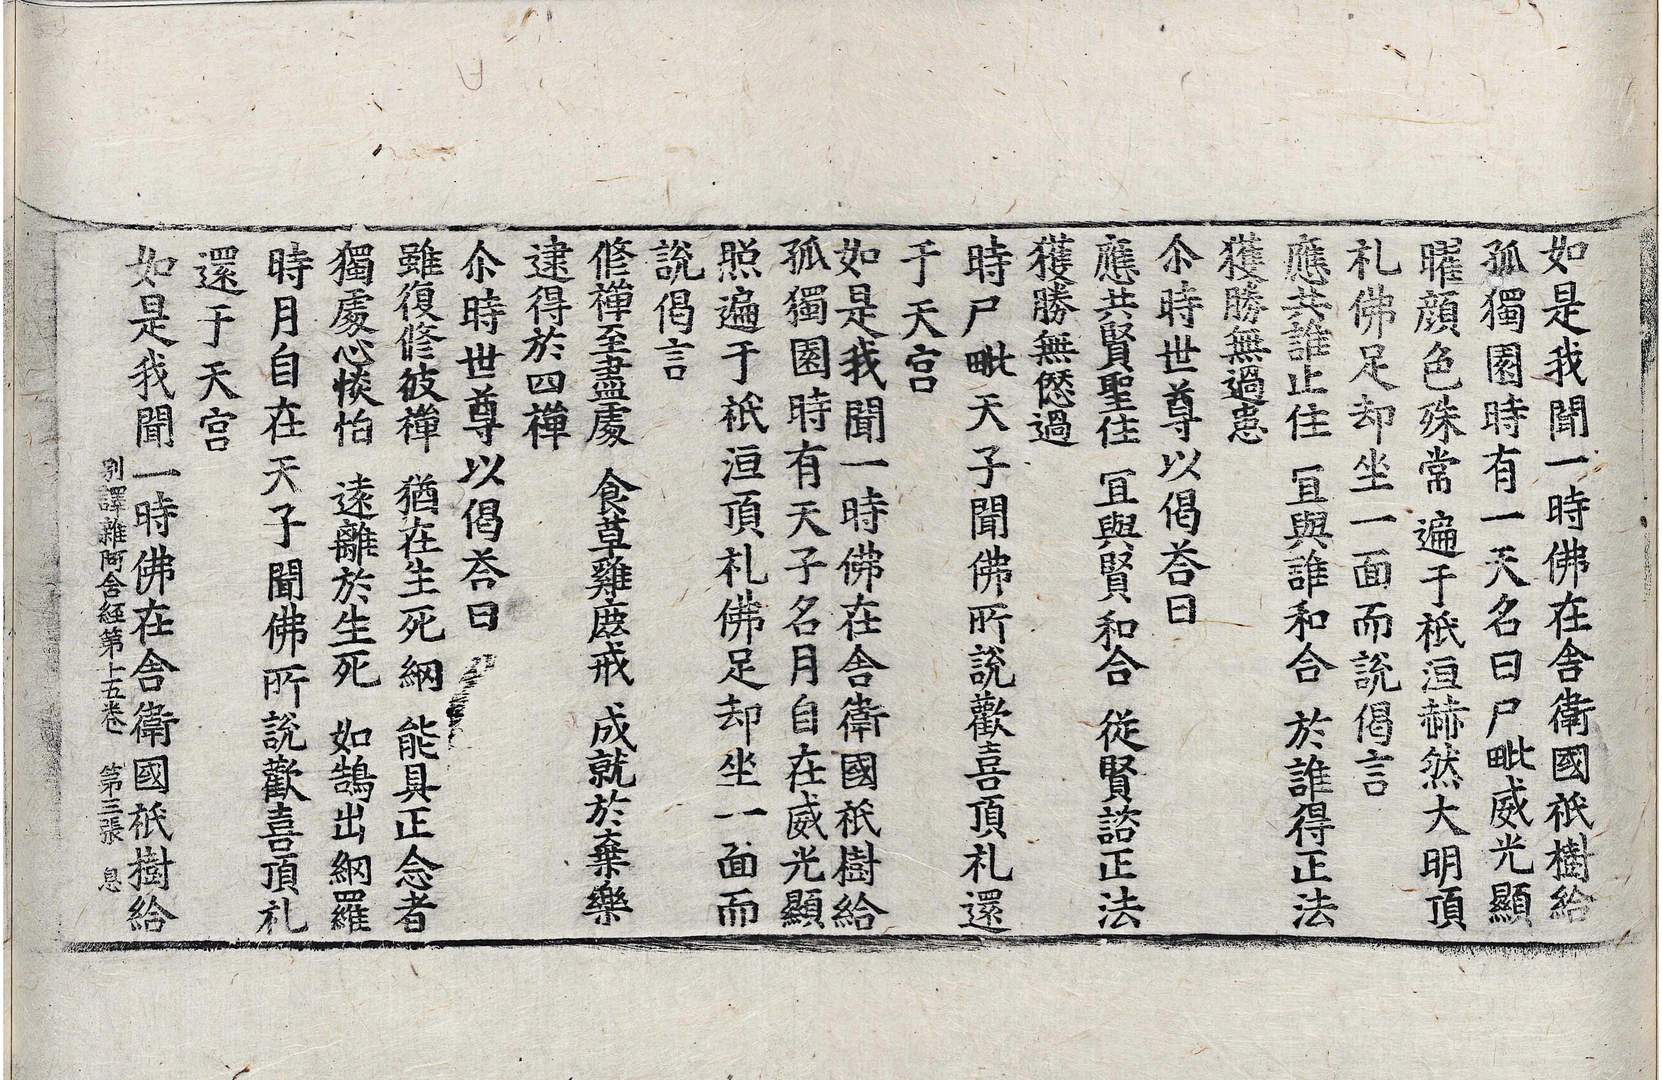 如是我聞一時佛在舍衛國祇樹給
孤獨園時有一天名曰尸毗威光顯
曜顔色殊常遍于祇洹赫然大明頂
礼佛足却坐一面而說偈言
應共誰止住　宜與誰和合　於誰得正法
獲勝無過患
尒時世尊以偈荅曰
應共賢聖住　宜與賢和合　從賢諮正法
獲勝無愆過
時尸毗天子聞佛所說歡喜頂礼還
于天宮
如是我聞一時佛在舍衛國祇樹給
孤獨園時有天子名月自在威光顯
照遍于祇洹頂礼佛足却坐一面而
說偈言
修禪至盡處　食草雞塵戒　成就於棄樂
逮得於四禪
尒時世尊以偈荅曰
雖復修彼禪　猶在生死網　能具正念者
獨處心惔怕　遠離於生死　如鵠出網羅
時月自在天子聞佛所說歡喜頂礼
還于天宮
如是我聞一時佛在舍衛國祇樹給
別譯雜阿含經第十五卷　第三張　息